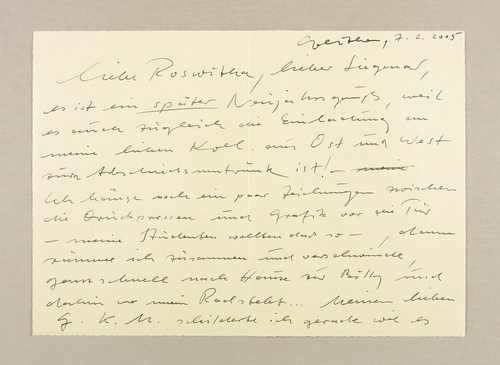 7. 2. 2005
Liebe Roswitha, lieber Siegmar,
es ist ein später Neujahrsgruß, weil
es auch zugleich die Einladung an
meine lieben Koll. aus Ost und West
zum Abschiedsumtrunk ist! – meine
Ich hänge noch ein paar Zeichnungen zwischen
die Druckpressen und Grafik vor die Tür
– meine Studenten wollten das so –, dann
räume ich zusammen und verschwinde,
ganz schnell nach Hause zur und
dorthin wo mein Rad steht... Meinem lieben
G. K. M. schilderte ich gerade wie es